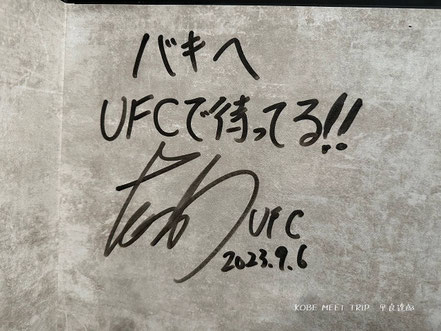 バキへ
UFCで待ってる!!
UFC
2023.9.6
KOBE MEET TRIP 平良達郎